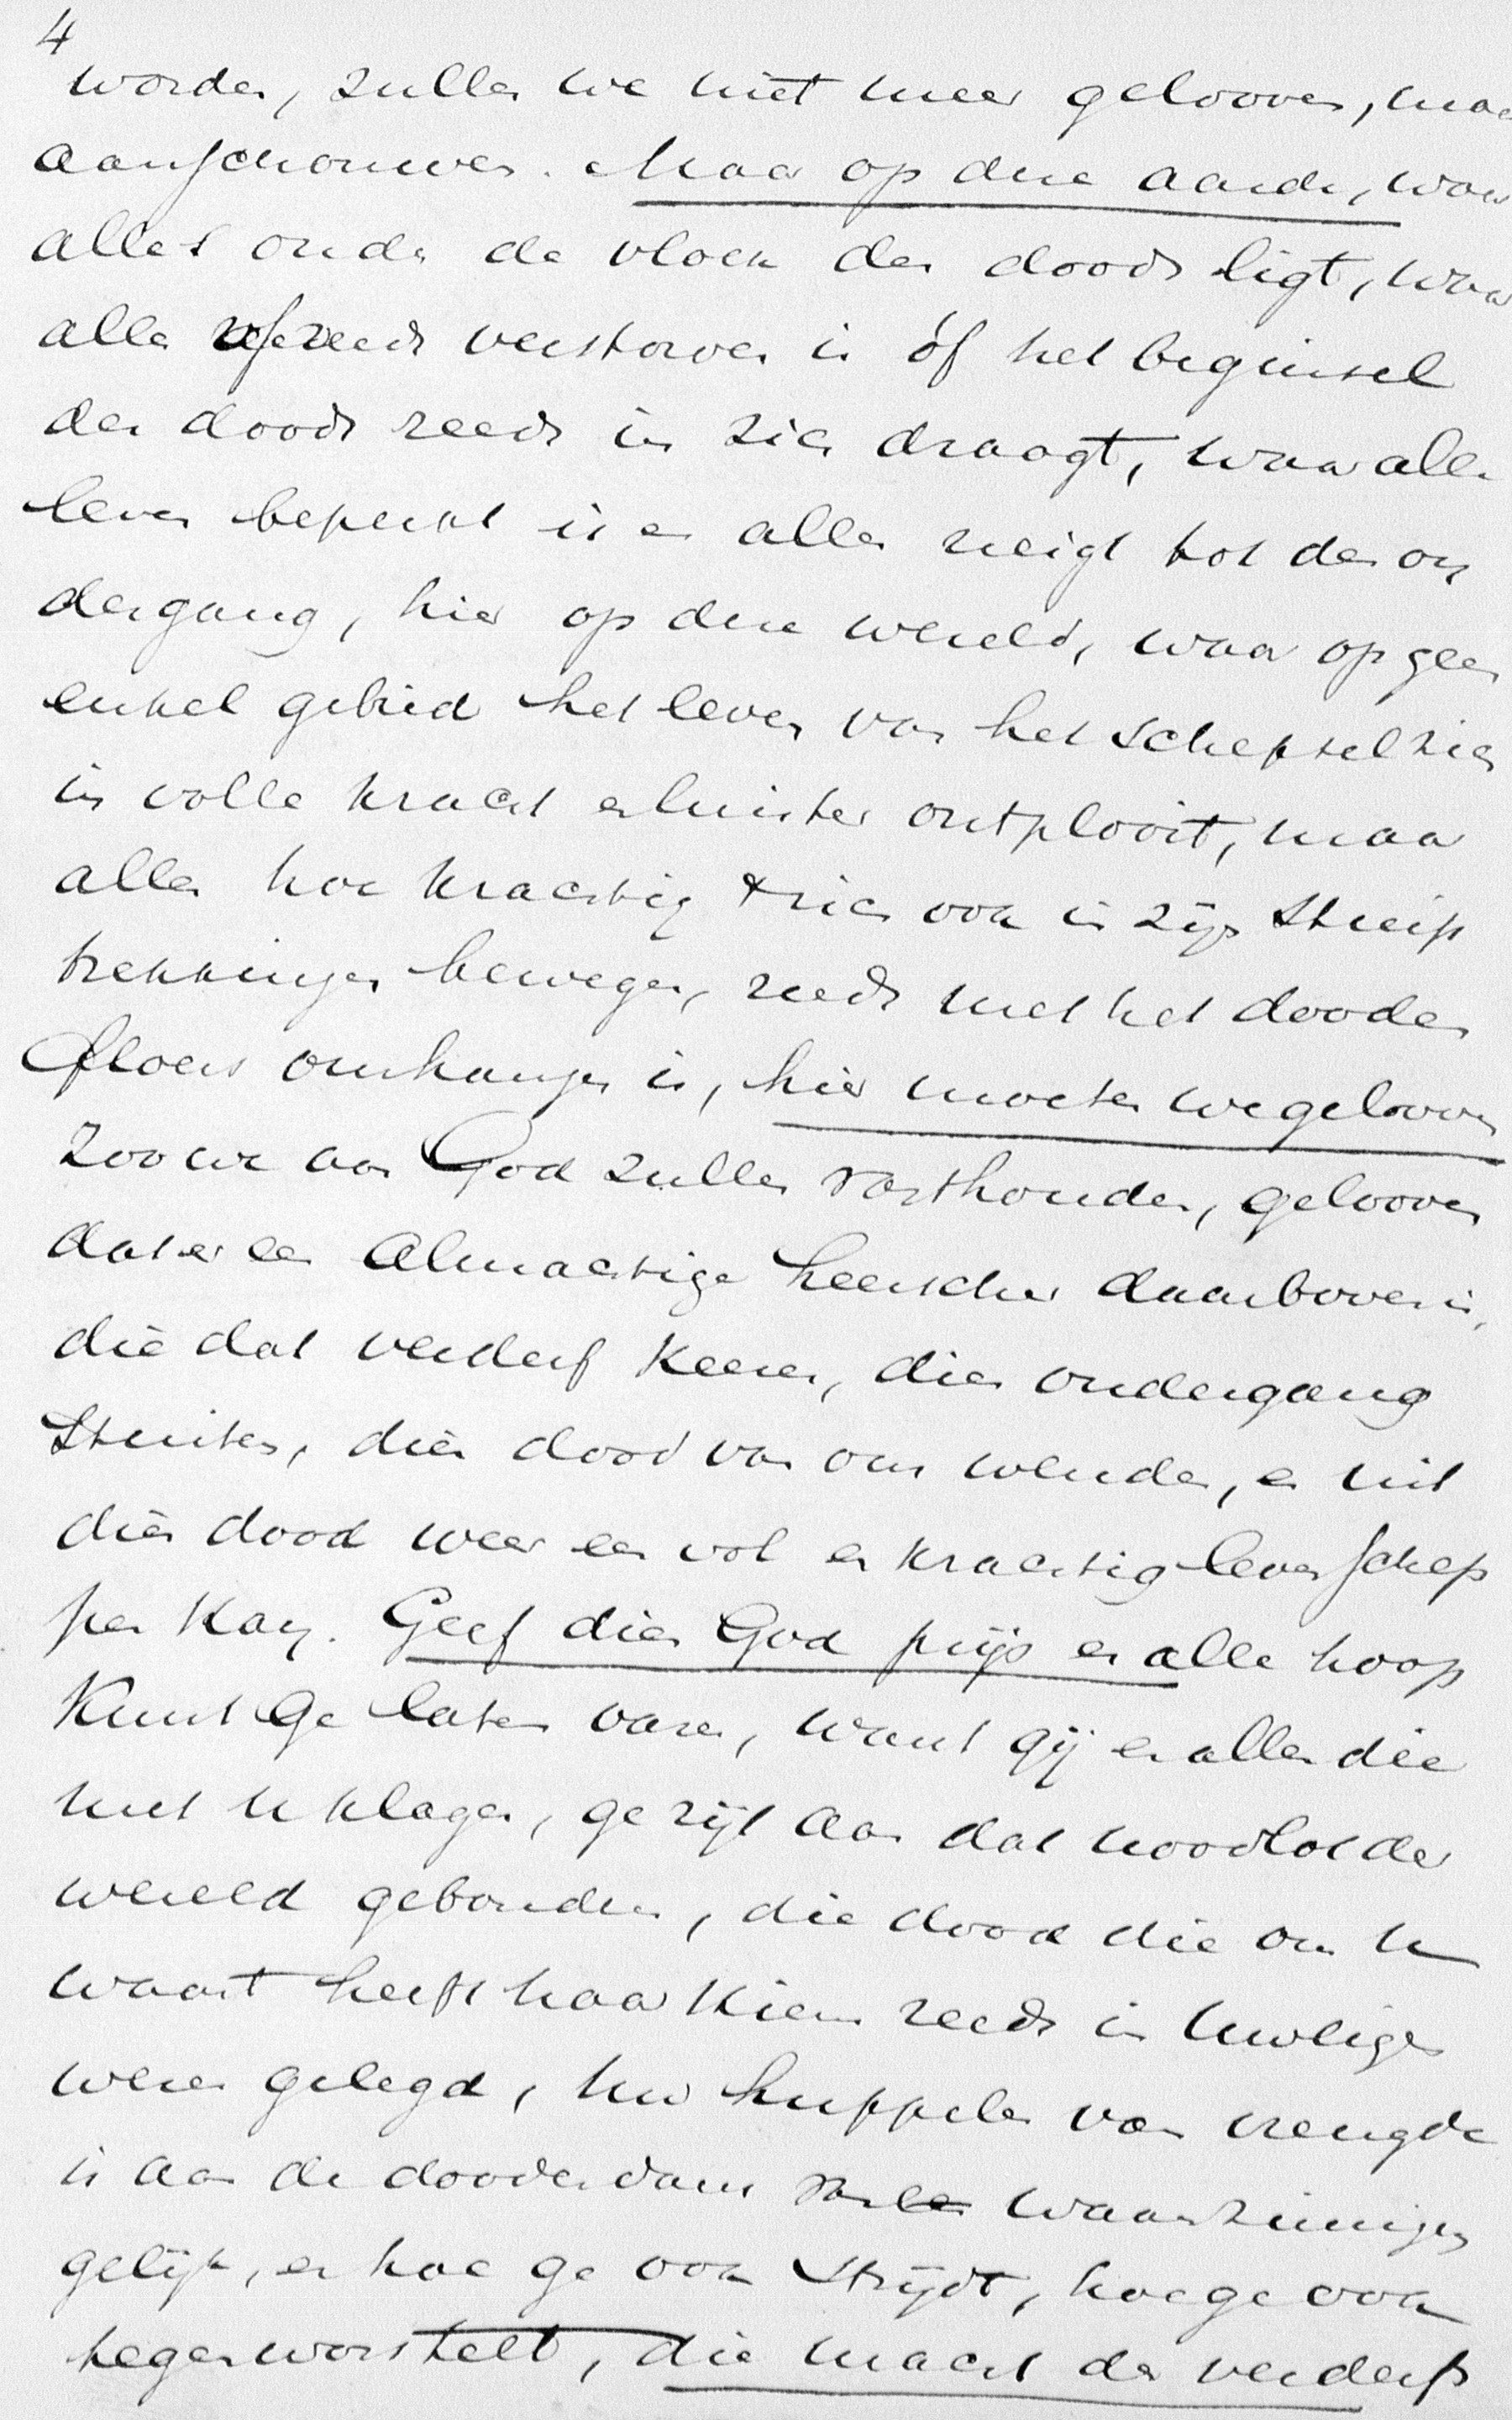 4
worden, zullen we niet meer gelooven, maar
aanschouwen. Maar op deze aarde, waar
alles onder de vloek des doods ligt, waar
alles óf reeds verstorven is óf het beginsel
des doods reeds in zich draagt, waar alle
leven beperkt is en alles neigt tot den on
dergang, hier op deze wereld, waar op geen
enkel gebied het leven van het schepsel zich
in volle kracht en luister ontplooit, maar
alles hoe krachtig zich ook in zijn stuip
trekkingen bewegen, reeds met het dooden
floers omhangen is, hier moeten we gelooven
Zoo we aan God zullen vasthouden, gelooven
dat er een Almachtige heerscher daarboven is,
die dat verderf keeren, dien ondergang
Stuiten, dien dood van ons wenden, en uit
dien dood weer een vol en krachtig leven schep
pen kan. Geef dien God prijs en alle hoop
Kunt Ge laten varen, want gij en allen die
met u klagen, ge zijt aan dat noodlot der
wereld gebonden, die dood die om u
waart heeft haar kiem reeds in uw eigen
wezen gelegd, uw huppelen van vreugde
is aan de doodendans van waanzinnigen
gelijk, en hoe ge ook strijdt, hoe ge ook
tegenworstelt, die macht des verderfs